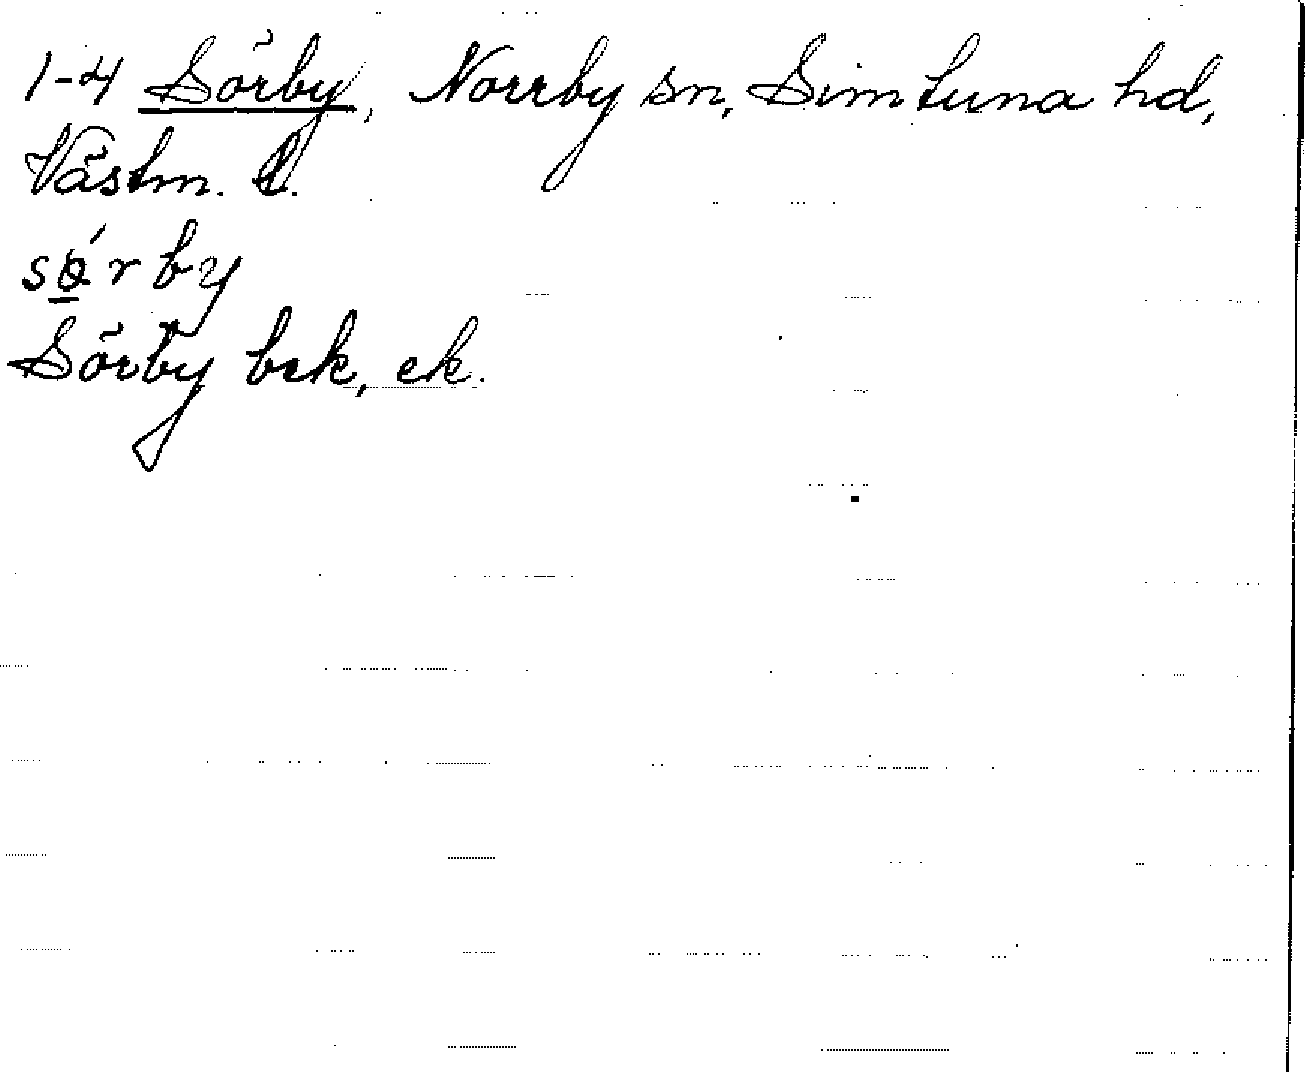 1-4 Sörby, Norrby sn, Simtuna hd,
Västm. l.
sǿ̲rby
Sörby bsk, ek.